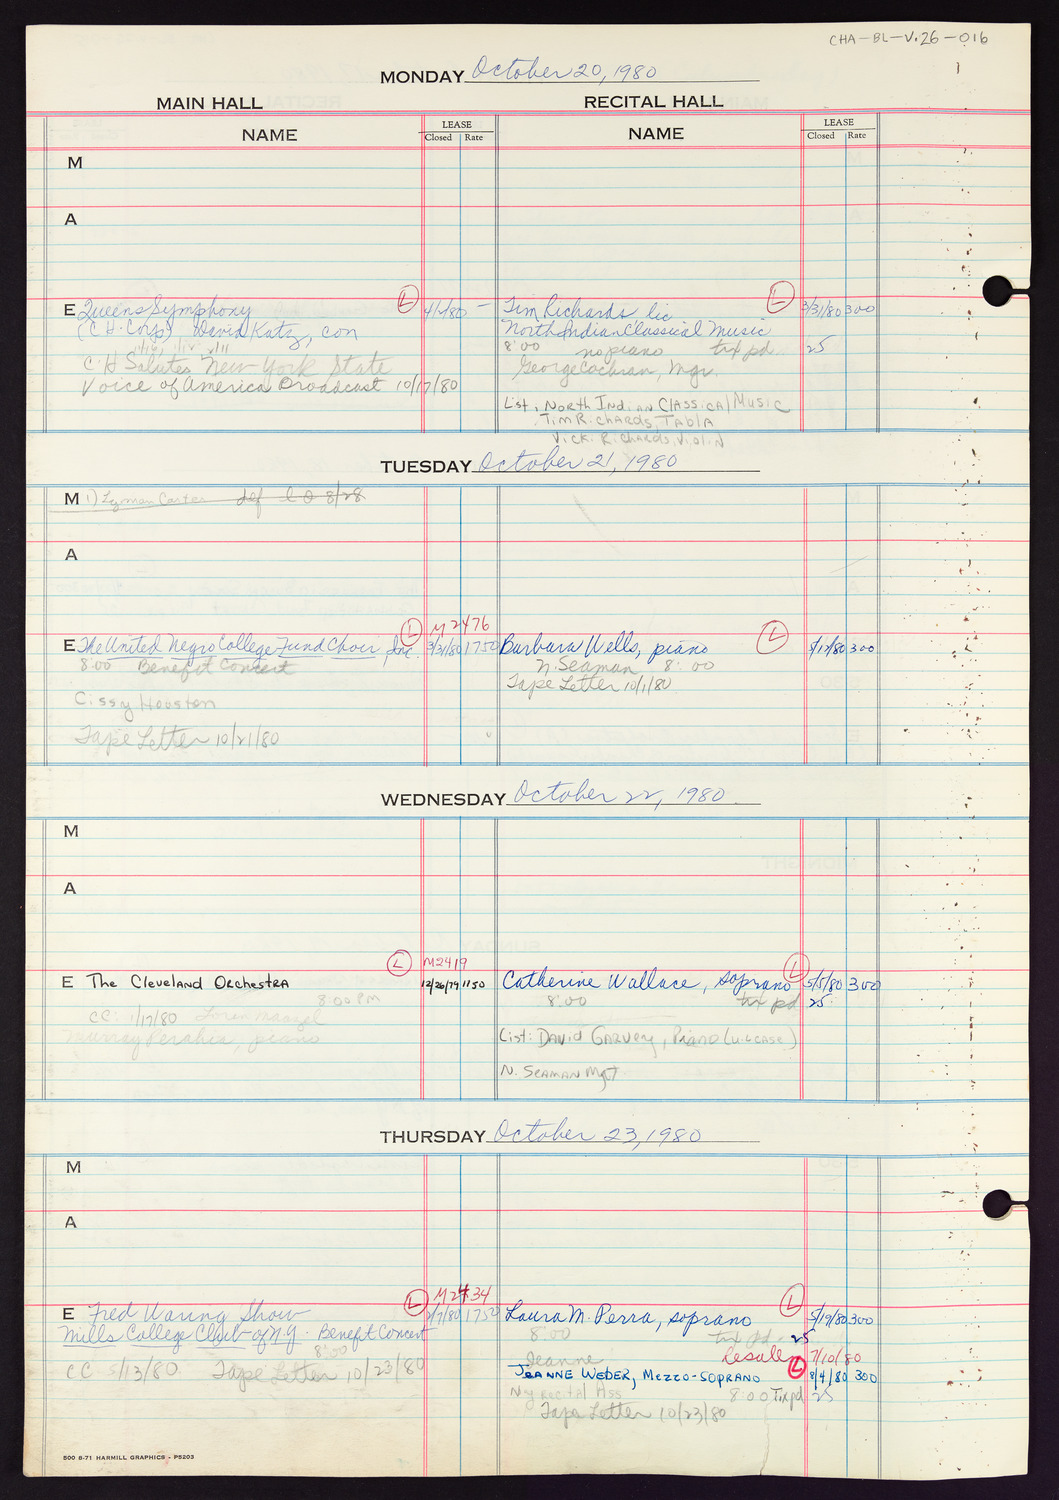 CHA-BL-V.26-016
MONDAY October 20, 1980
MAIN HALL
RECITAL HALL
NAME
LEASE
Closed Rate
NAME
LEASE
Closed Rate
M
A
E Queens Symphony L 4/1/80 —
(C.H. Corp) David Katz, con
C.H Salutes New York State
Voice of America Broadcast 10/17/80
Tim Richards lic L 3/31/80 300
North Indian Classical Music
8:00 no piano tax pd. 25
George Cochran, Mgr.
List: North Indian Classical Music
Tim Richards, Tabla
Vicki Richards, Violin
TUESDAY October 21, 1980
M 1) Lyman Carter def 8/28
A
L M2476
E The United Negro College Fund Choir, Inc. 3/31/80 1750
8:00 Benefit Concert
Cissy Houston
Tape Letter 10/21/80
Barbara Wells, piano L 5/12/80 300
N. Seaman 8:00
Tape Letter 10/1/80
WEDNESDAY October 22, 1980
M
A
L M2419
E The Cleveland Orchestra 12/26/79 1150
8:00 PM
CC: 1/17/80 Loren Maazel
Murray Perahia, piano
Catherine Wallace, soprano L 5/5/80 300
8:00 tax pd 25
List: David Garvey, Piano (u.l.case)
N. Seaman Mgt
THURSDAY October 23, 1980
M
A
L M2434
E Fred Waring Show 2/7/80 1750
Mills College Club of N.Y. Benefit Concert
8:00
CC 5/13/80 Tape Letter 10/23/80
Laura M. Perra, soprano L 5/19/80 300
8:00 tax pd. 25
Resale 7/10/80
Jeanne
Jeanne Weber, Mezzo-Soprano L 8/4/80 300
Ny Recital Ass 8:00 Tax pd 25
Tape Letter 10/23/80
500 6-71 HARMILL GRAPHICS - P5203